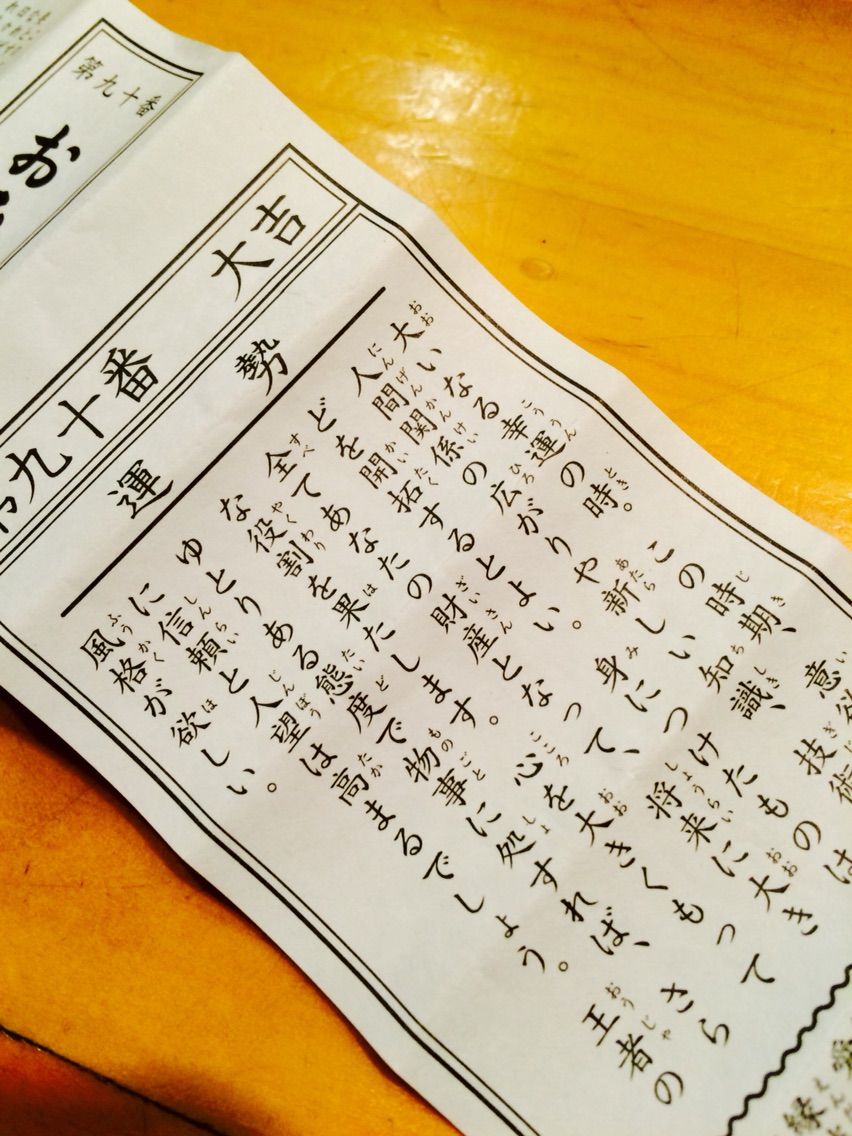 第九十番
お
大吉
九十番
運勢
大いなる幸運の時。この時期、意欲
人間関係の広がりや、新しい知識、技術
どを開拓するとよい。身につけたものは
全てあなたの財産となって、将来に大き
な役割を果たします。心を大きくもって
ゆとりある態度で物事に処すれば、さら
に信頼と人望は高まるでしょう。王者の
風格が欲しい。